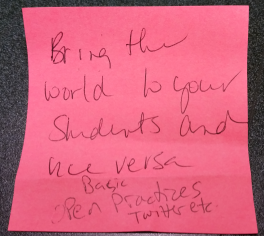 Bring the
world to your
Students and
vice versa
Basic
open Practices
Twitter etc.